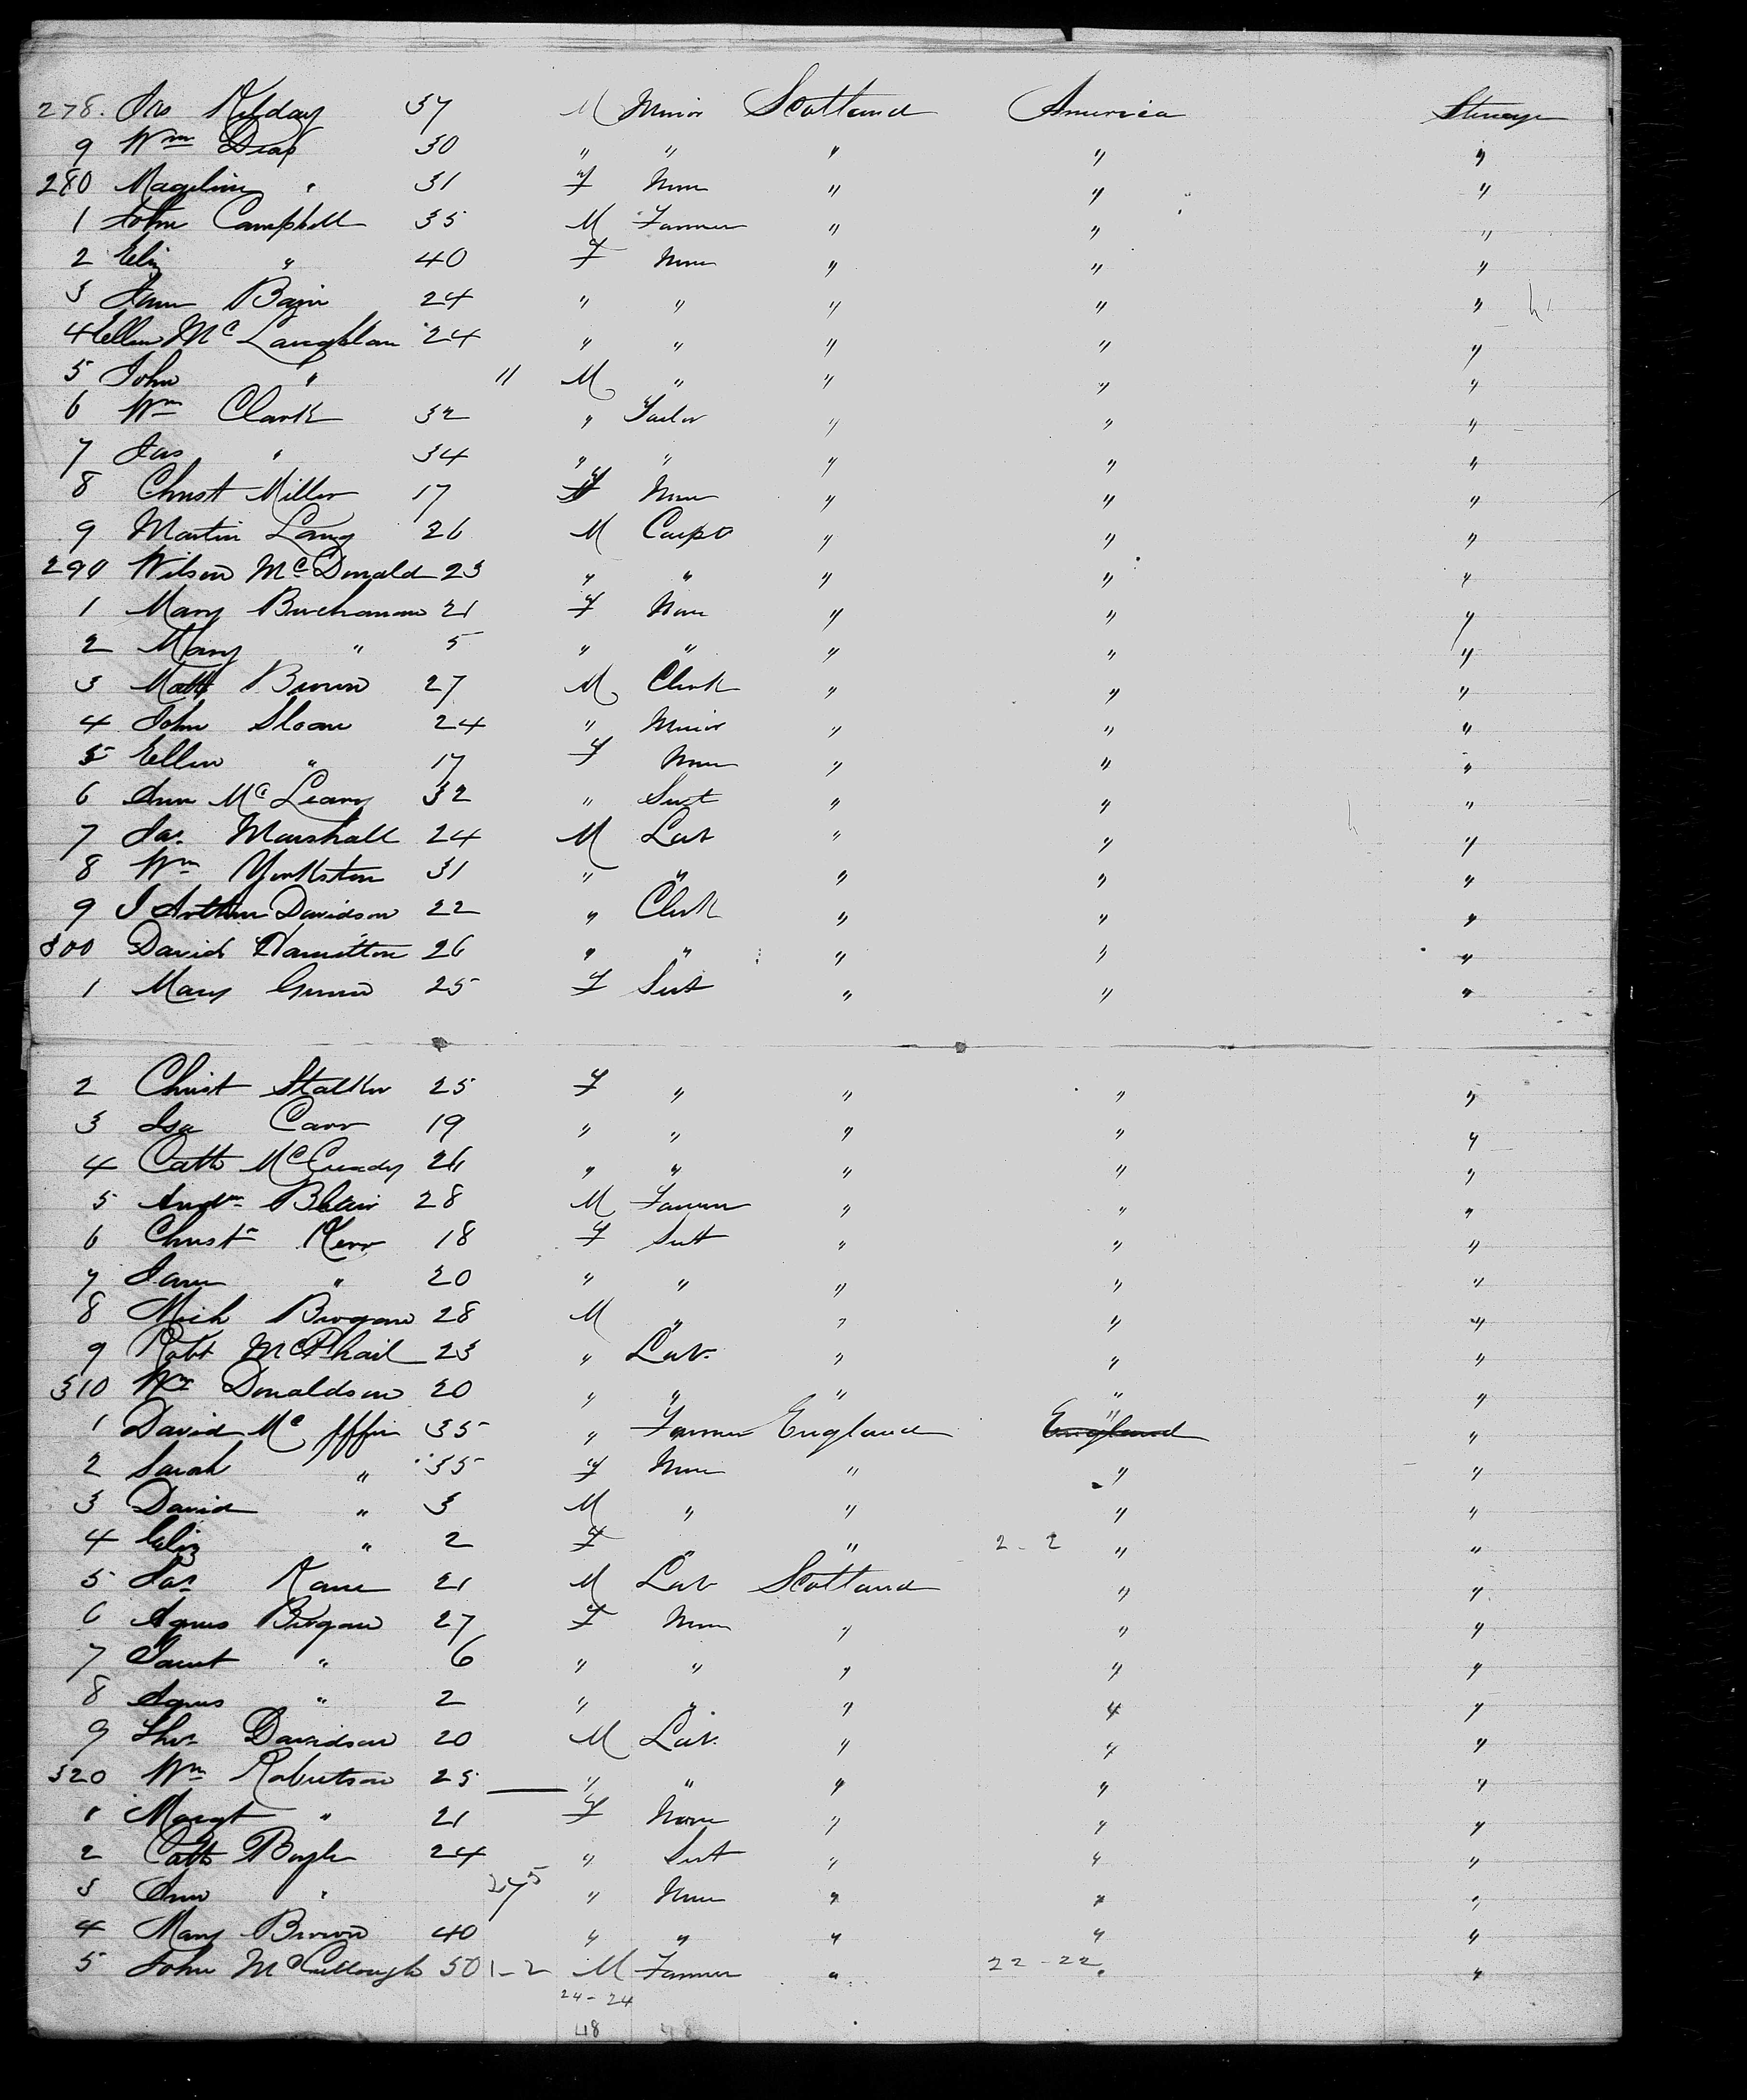 278. Jno Kilday 37 M Minor Scotland America Steerage
9 Wm Deas 30 " " " " "
280 Magelin " 31 F None " " "
1 John Campbell 35 M Farmer " " "
2 Eliz " 40 F None " " "
3 Jane Bain 24 " " " " "
4 Ellen McLaughlan 24 " " " " "
5 John " 11 M " " " "
6 Wm Clark 32 " Tailor " " "
7 Jas " 34 " " " " "
8 Christ Miller 17 F None " " "
9 Martin Lang 26 M Carpr " " "
290 Wilson McDonald 23 " " " " "
1 Mary Buchanan 21 F None " " "
2 Mary " 5 " " " " "
3 Matt Brown 27 M Clerk " " "
4 John Sloan 24 " Minor " " "
5 Ellen " 17 F None " " "
6 Ann McLeary 32 " Sert " " "
7 Jas. Marshall 24 M Lab " " "
8 Wm Yorkston 31 " " " " "
9 J Arthur Davidson 22 " Clerk " " "
300 David Hamilton 26 " " " " "
1 Mary Gunn 25 F Sert " " "
2 Christ Stalker 25 F " " " "
3 Isa Carr 19 " " " " "
4 Cath McCready 26 " " " " "
5 Andw Blair 28 M Farmer " " "
6 Christ Kerr 18 F Sert " " "
7 Jane " 20 " " " " "
8 Mich Brogan 28 M " " " "
9 Robt McPhail 23 " Lab. " " "
310 Wm Donaldson 20 " " " " "
1 David Mc 35 " Farmer England " England "
2 Sarah " 35 F None " " "
3 David " 3 M " " " "
4 Eliz " 2 F " " 2-2 " "
5 Jas Kane 21 M Lab Scotland " "
6 Agnes Brogan 27 F None " " "
7 Janet " 6 " " " " "
8 Agnes " 2 " " " " "
9 Thos Davidson 20 M Lab. " " "
320 Wm Robertson 25 " " " " "
1 Margt " 21 F None " " "
2 Cath Boyle 24 " Sert " " "
3 Ann " " None " " "
4 Mary Brown 40 " " " " "
5 John McCullough 50 1-2 M Farmer " 22-22 "
24-24
48 48